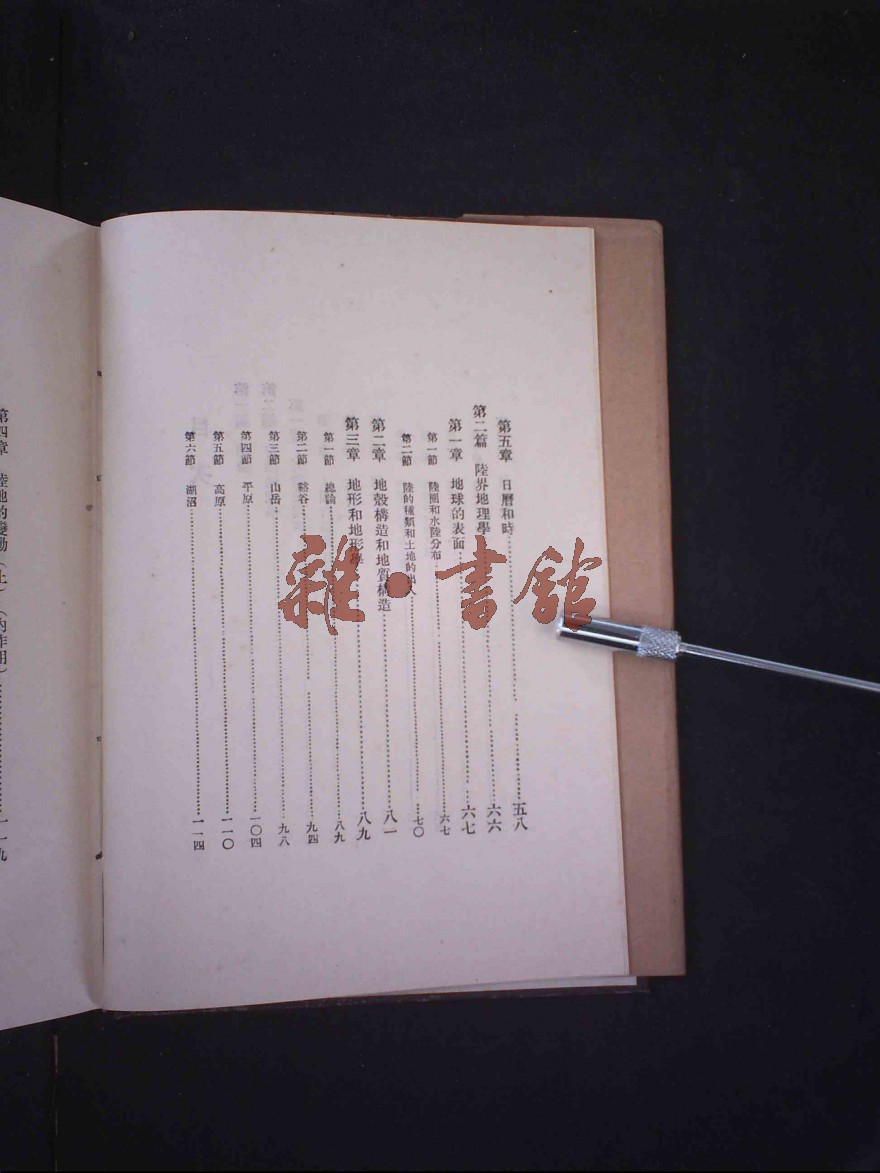 第五章 日曆和時 五八
第二篇 陸界地理學 六六
第一章 地球的表面 六七
第一節 陸圈和水陸分布 六七
第二節 陸的種類和土地的出入 七〇
第二章 地殼構造和地質構造 八一
第三章 地形和地形學 八九
第一節 總論 八九
第二節 谿谷 九四
第三節 山岳 九八
第四節 平原 一〇四
第五節 高原 一一〇
第六節 湖沼 一一四
第四章 陸地的變動(上)(內作用) 一一九
雜·書館